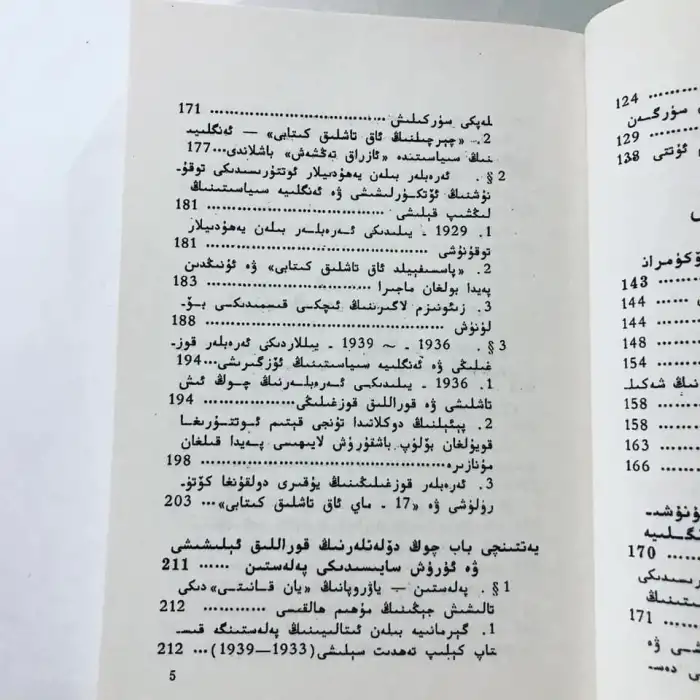 لەپكى سۈركىلىش ........................ 171
2. «چېرچىلنىڭ ئاق تاشلىق كىتابى» — ئەنگلىيە
نىڭ سىياسىتىدە «ئازراق تەڭشەش» باشلاندى...177
§2 . ئەرەبلەر بىلەن يەھۇدىيلار ئوتتۇرىسىدىكى توقۇ-
نۇشنىڭ ئۆتكۈرلىشىشى ۋە ئەنگلىيە سىياسىتىنىڭ
لىڭشىپ قېلىشى ........................ 181
1. 1929 - يىلىدىكى ئەرەبلەر بىلەن يەھۇدىيلار
توقۇنۇشى ........................ 181
2. «پاسسفېيلد ئاق تاشلىق كىتابى» ۋە ئۇنىڭدىن
پەيدا بولغان ماجىرا ........................ 183
3. زىئونىزم لاگىرىنىڭ ئىچكى قىسمىدىكى بۆ-
لۈنۈش ........................ 188
§3 . 1936 - ~ 1939 - يىللاردىكى ئەرەبلەر قوز-
غىلىڭى ۋە ئەنگلىيە سىياسىتىنىڭ ئۆزگىرىشى...194
1. 1936 - يىلىدىكى ئەرەبلەرنىڭ چوڭ ئىش
تاشلىشى ۋە قوراللىق قوزغىلىڭى........................ 194
2. پېئېلنىڭ دوكلاتىدا تۇنجى قېتىم ئوتتۇرىغا
قويۇلغان بۆلۈپ باشقۇرۇش لايىھىسى پەيدا قىلغان
مۇنازىرە........................ 198
3. ئەرەبلەر قوزغىلىڭىنىڭ يۇقىرى دولقۇنغا كۆتۈ-
رۈلۈشى ۋە «17 - ماي ئاق تاشلىق كىتابى»... 203
يەتتىنچى باب چوڭ دۆلەتلەرنىڭ قوراللىق ئېلىشىشى
ۋە ئۇرۇش سايىسىدىكى پەلەستىن ...... 211
§1 . پەلەستىن — ياۋروپانىڭ «يان قانىتى»دىكى
تالىشىش جېڭىنىڭ مۇھىم ھالقىسى ............ 212
1. گېرمانىيە بىلەن ئىتالىيىنىڭ پەلەستىنگە قىس-
تاپ كېلىپ تەھدىت سېلىشى(1933—1939)... 212
5
124
سۈرگەن
129
ئۆتتى 138
143
144
144
148
154
نىڭ شەكىل-
158
158
163
166
170
171